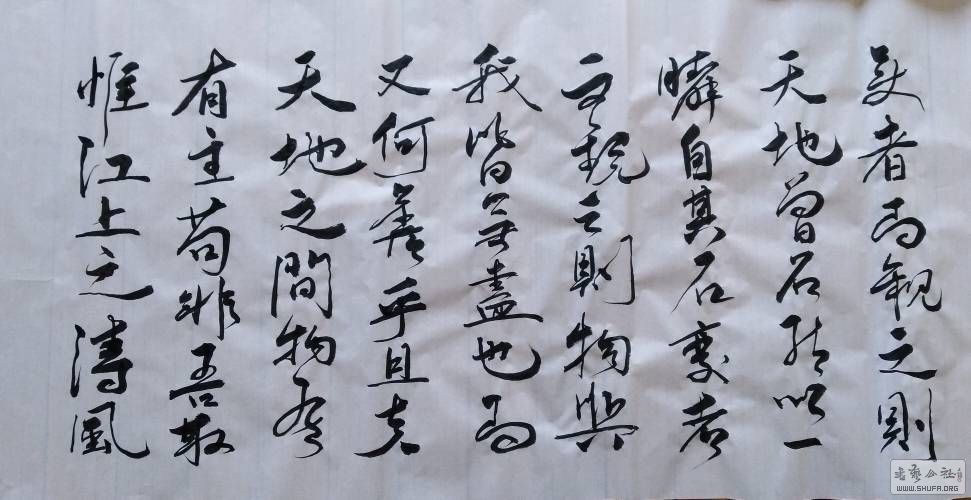 變者而觀之則
天地曾不能以一
瞬自其不變者
而觀之則物與
我皆無盡也而
又何羨乎且夫
天地之間物各
有主苟非吾取
惟江上之清風
書藝公社
WWW.SHUFA.ORG